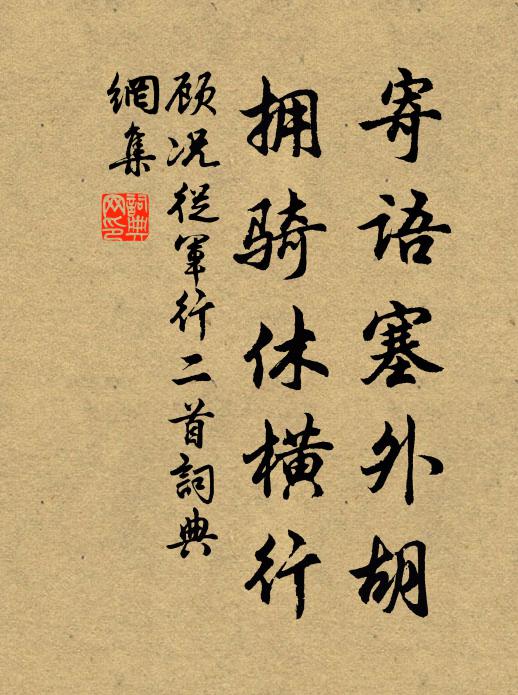 寄语塞外胡
拥骑休横行
顾况從軍行二首詞典
網集
詞典
网印